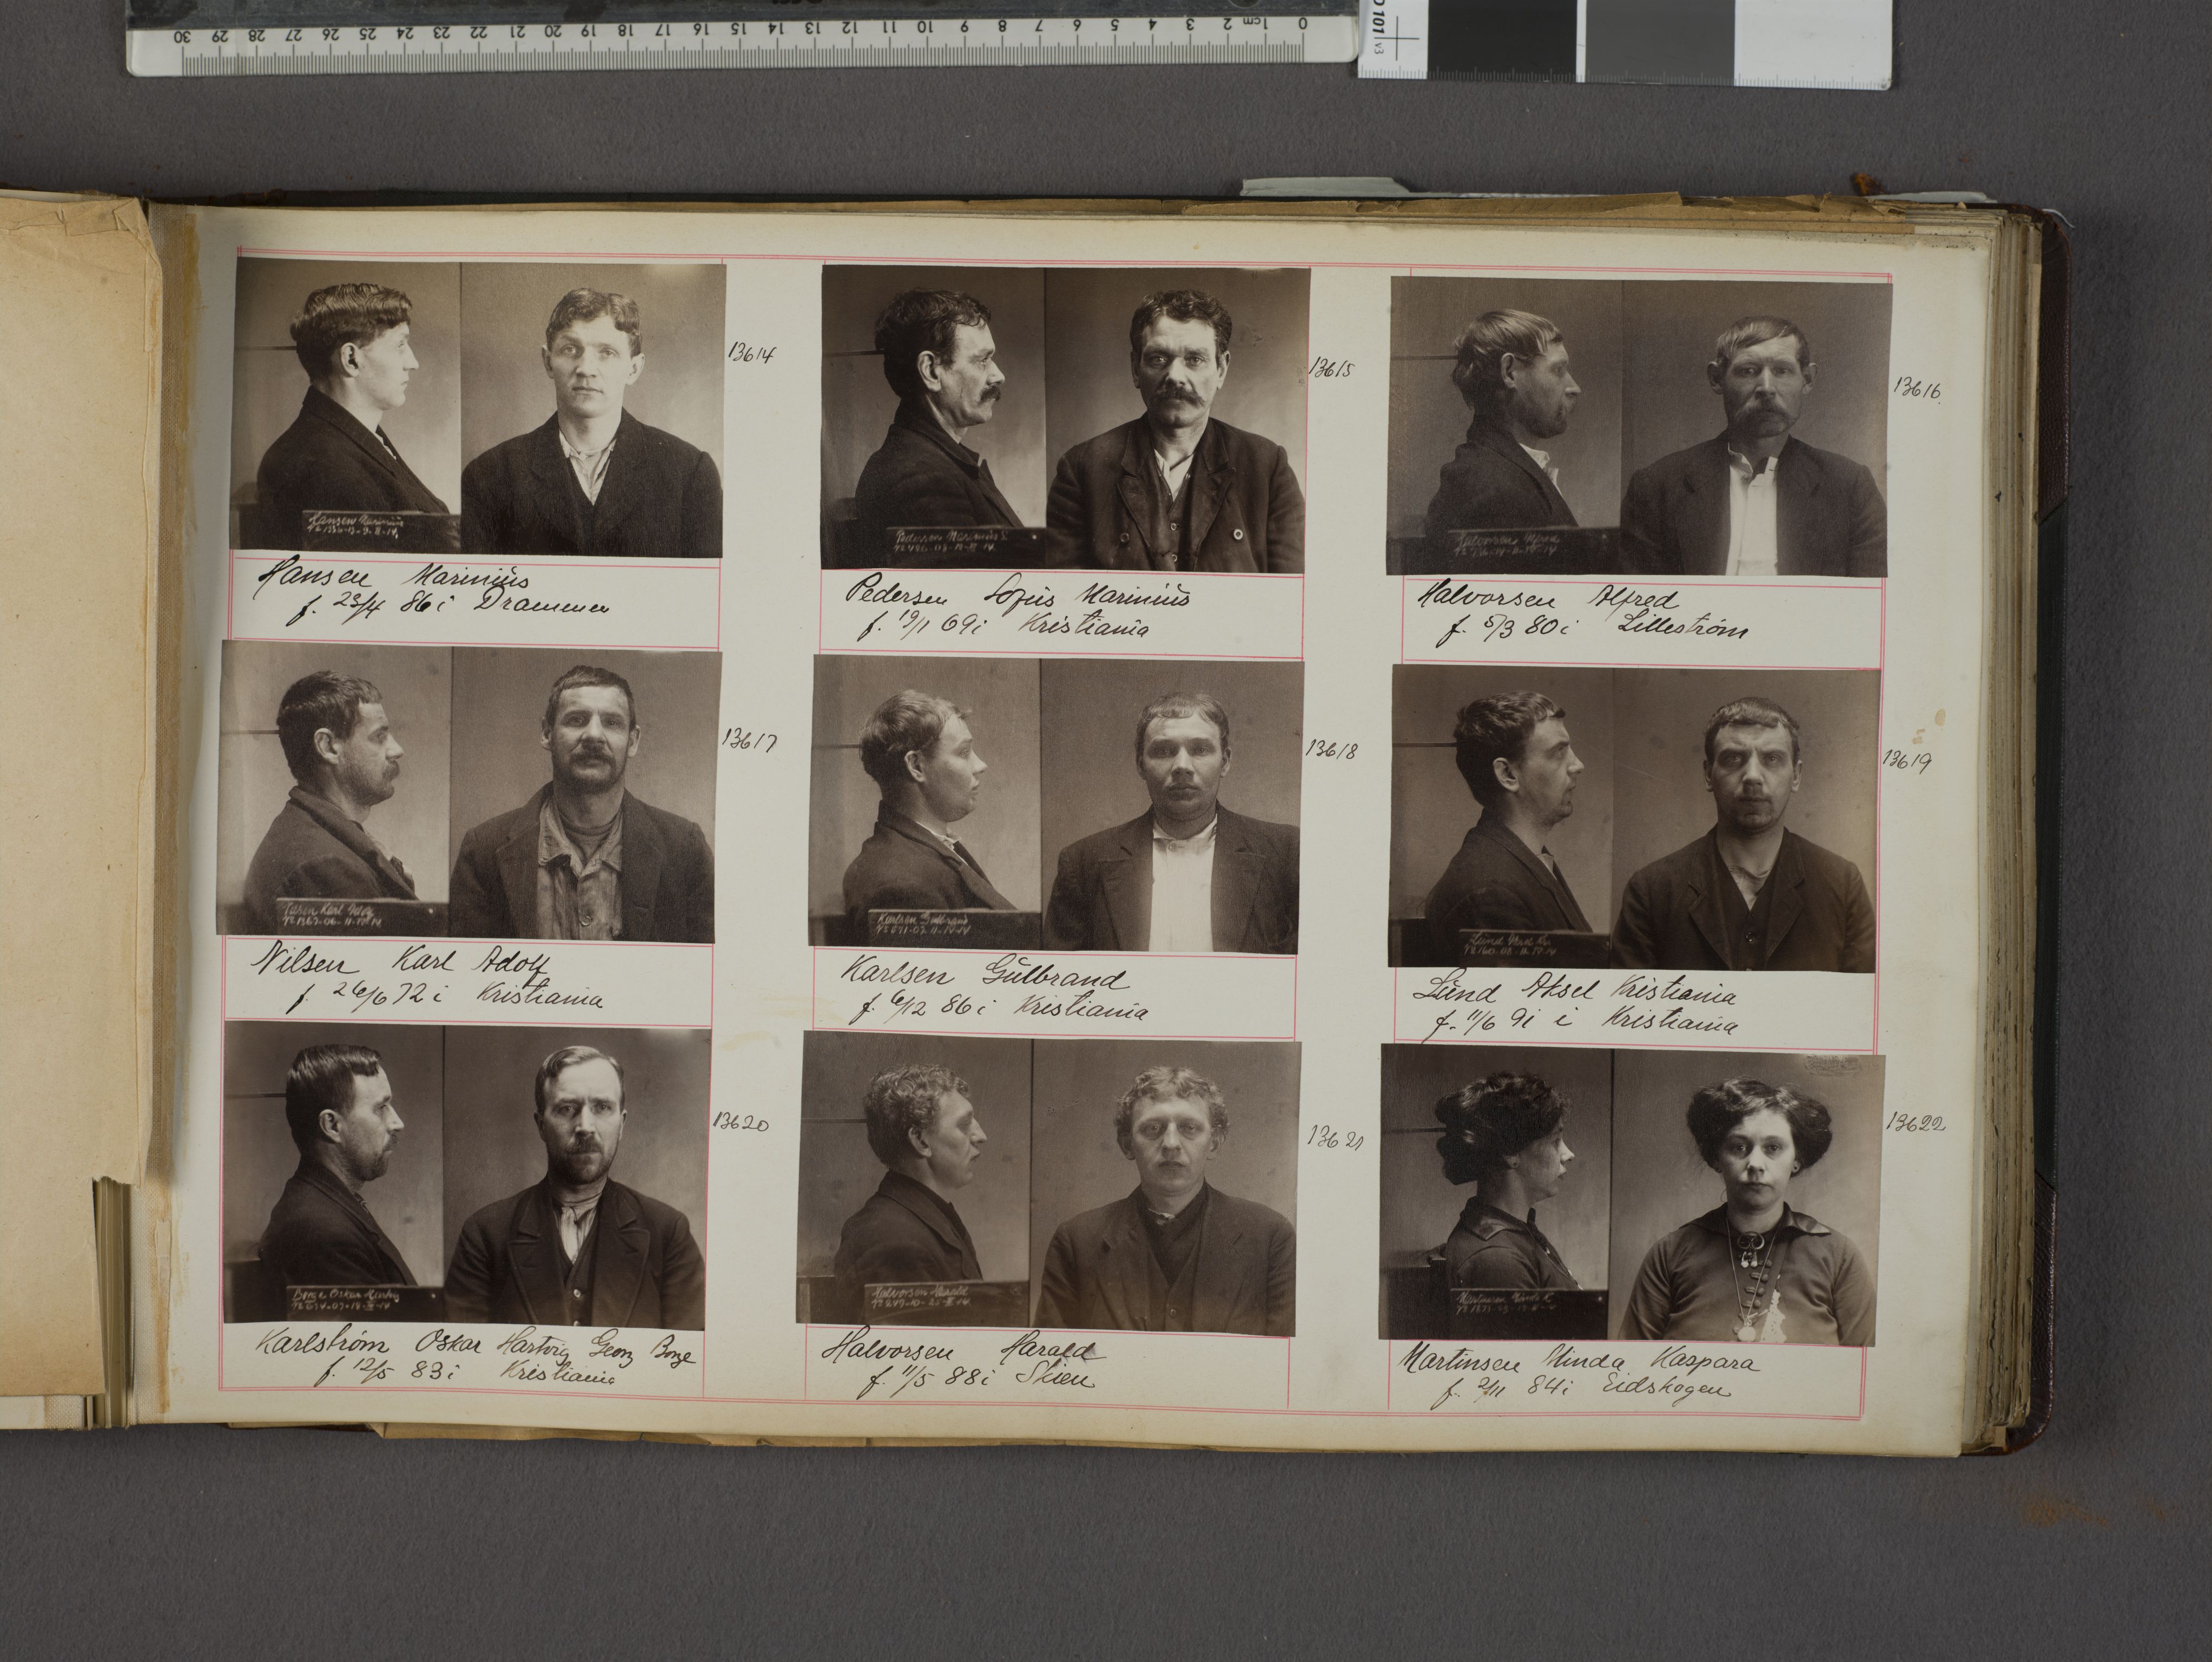 0 1cm 2 3 4 5 6 7 8 9 10 11 12 13 14 15 16 17 18 19 20 21 22 23 24 25 26 27 28 29 30
101 v3
13614
Hansen Marinius
Hansen Marinius
f. 23/4 86 i Drammen
13615
Pedersen Marinius S.
Pedersen Lofus Marinius
f. 19/1 69 i Kristiania
13616.
Halvorsen Alfred
Halvorsen Alfred
f. 5/3 80 i Lilleström
13617
Karl
Nilsen Karl Adolf
f. 26/6 72 i Kristiania
13618
Karlsen Gulbrand
Karlsen Gulbrand
f. 6/12 86 i Kristiania
13619
Lund
Lund Aksel Kristiania
f. 11/6 91 i Kristiania
13620
Borge Oskar
Karlström Oskar Hartvig Georg Borge
f. 12/5 83 i Kristiania
13621
Halvorsen Harald
Halvorsen Harald
f. 11/5 88 i Skien
13622
Martinsen Minda K.
Martinsen Minda Kaspara
f. 2/11 84 i Eidskogen